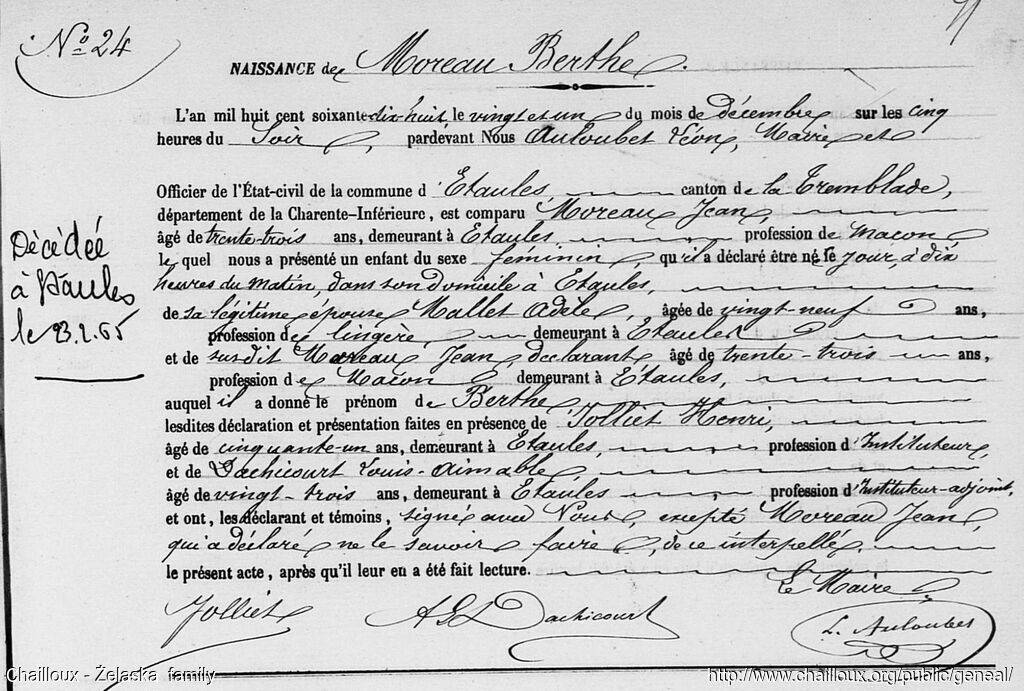 No 24
NAISSANCE de Moreau Berthe.
L'an mil huit cent soixante-dix-huit le vingt et un du mois de décembre sur les cinq
heures du Soir, pardévant Nous Auloubet Léon, Maire et
Officier de l'État-civil de la commune d'Etaules canton de la Tremblade,
département de la Charente-Inférieure, est comparu Moreau Jean,
âgé de trente-trois ans, demeurant à Etaules, profession de Maçon
le quel nous a présenté un enfant du sexe féminin, qu'il a déclaré être né ce jour, à dix
heures du matin, dans son domicile à Etaules,
de sa légitime épouse Mallet Adèle, âgée de vingt-neuf ans,
profession de lingère, demeurant à Etaules
et de susdit Moreau Jean, déclarant âgé de trente-trois ans,
profession de Maçon demeurant à Étaules,
auquel il a donné le prénom de Berthe
lesdites déclaration et présentation faites en présence de Jolliet Henri,
âgé de cinquante-un ans, demeurant à Etaules, profession d'Instituteur,
et de Dachicourt Louis-Aimable
âgé de vingt-trois ans, demeurant à Etaules profession d'Instituteur-adjoint,
et ont, les déclarant et témoins, signé avec Nous, excepté Moreau Jean,
qui a déclaré ne le savoir faire, de ce interpellé.
le présent acte, après qu'il leur en a été fait lecture.
Le Maire
Jolliet Dachicourt L. Auloubet
Décédée
à Etaules
le 23.2.65
Chailloux - Żelaska family http://www.chailloux.org/public/geneal/